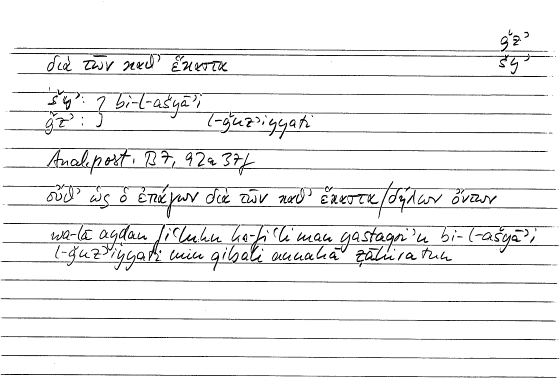 ǧzʾ
διὰ τῶν καθ' ἕκαστα
šyʾ
šyʾ : } bi-l-ašyāʾi
ǧzʾ : } l-ǧuzʾiyyati
Anal. post. B7, 92a37f
οὔθ' ὡς ὁ ἐπάγων διὰ τῶν καθ' ἕκαστα/δήλων ὄντων
wa-lā ayḍan fiʿluhu ka-fiʿli man yastaqriʾu bi-l-ašyāʾi
l-ǧuzʾiyyati min qibali annahā ẓāhiratun